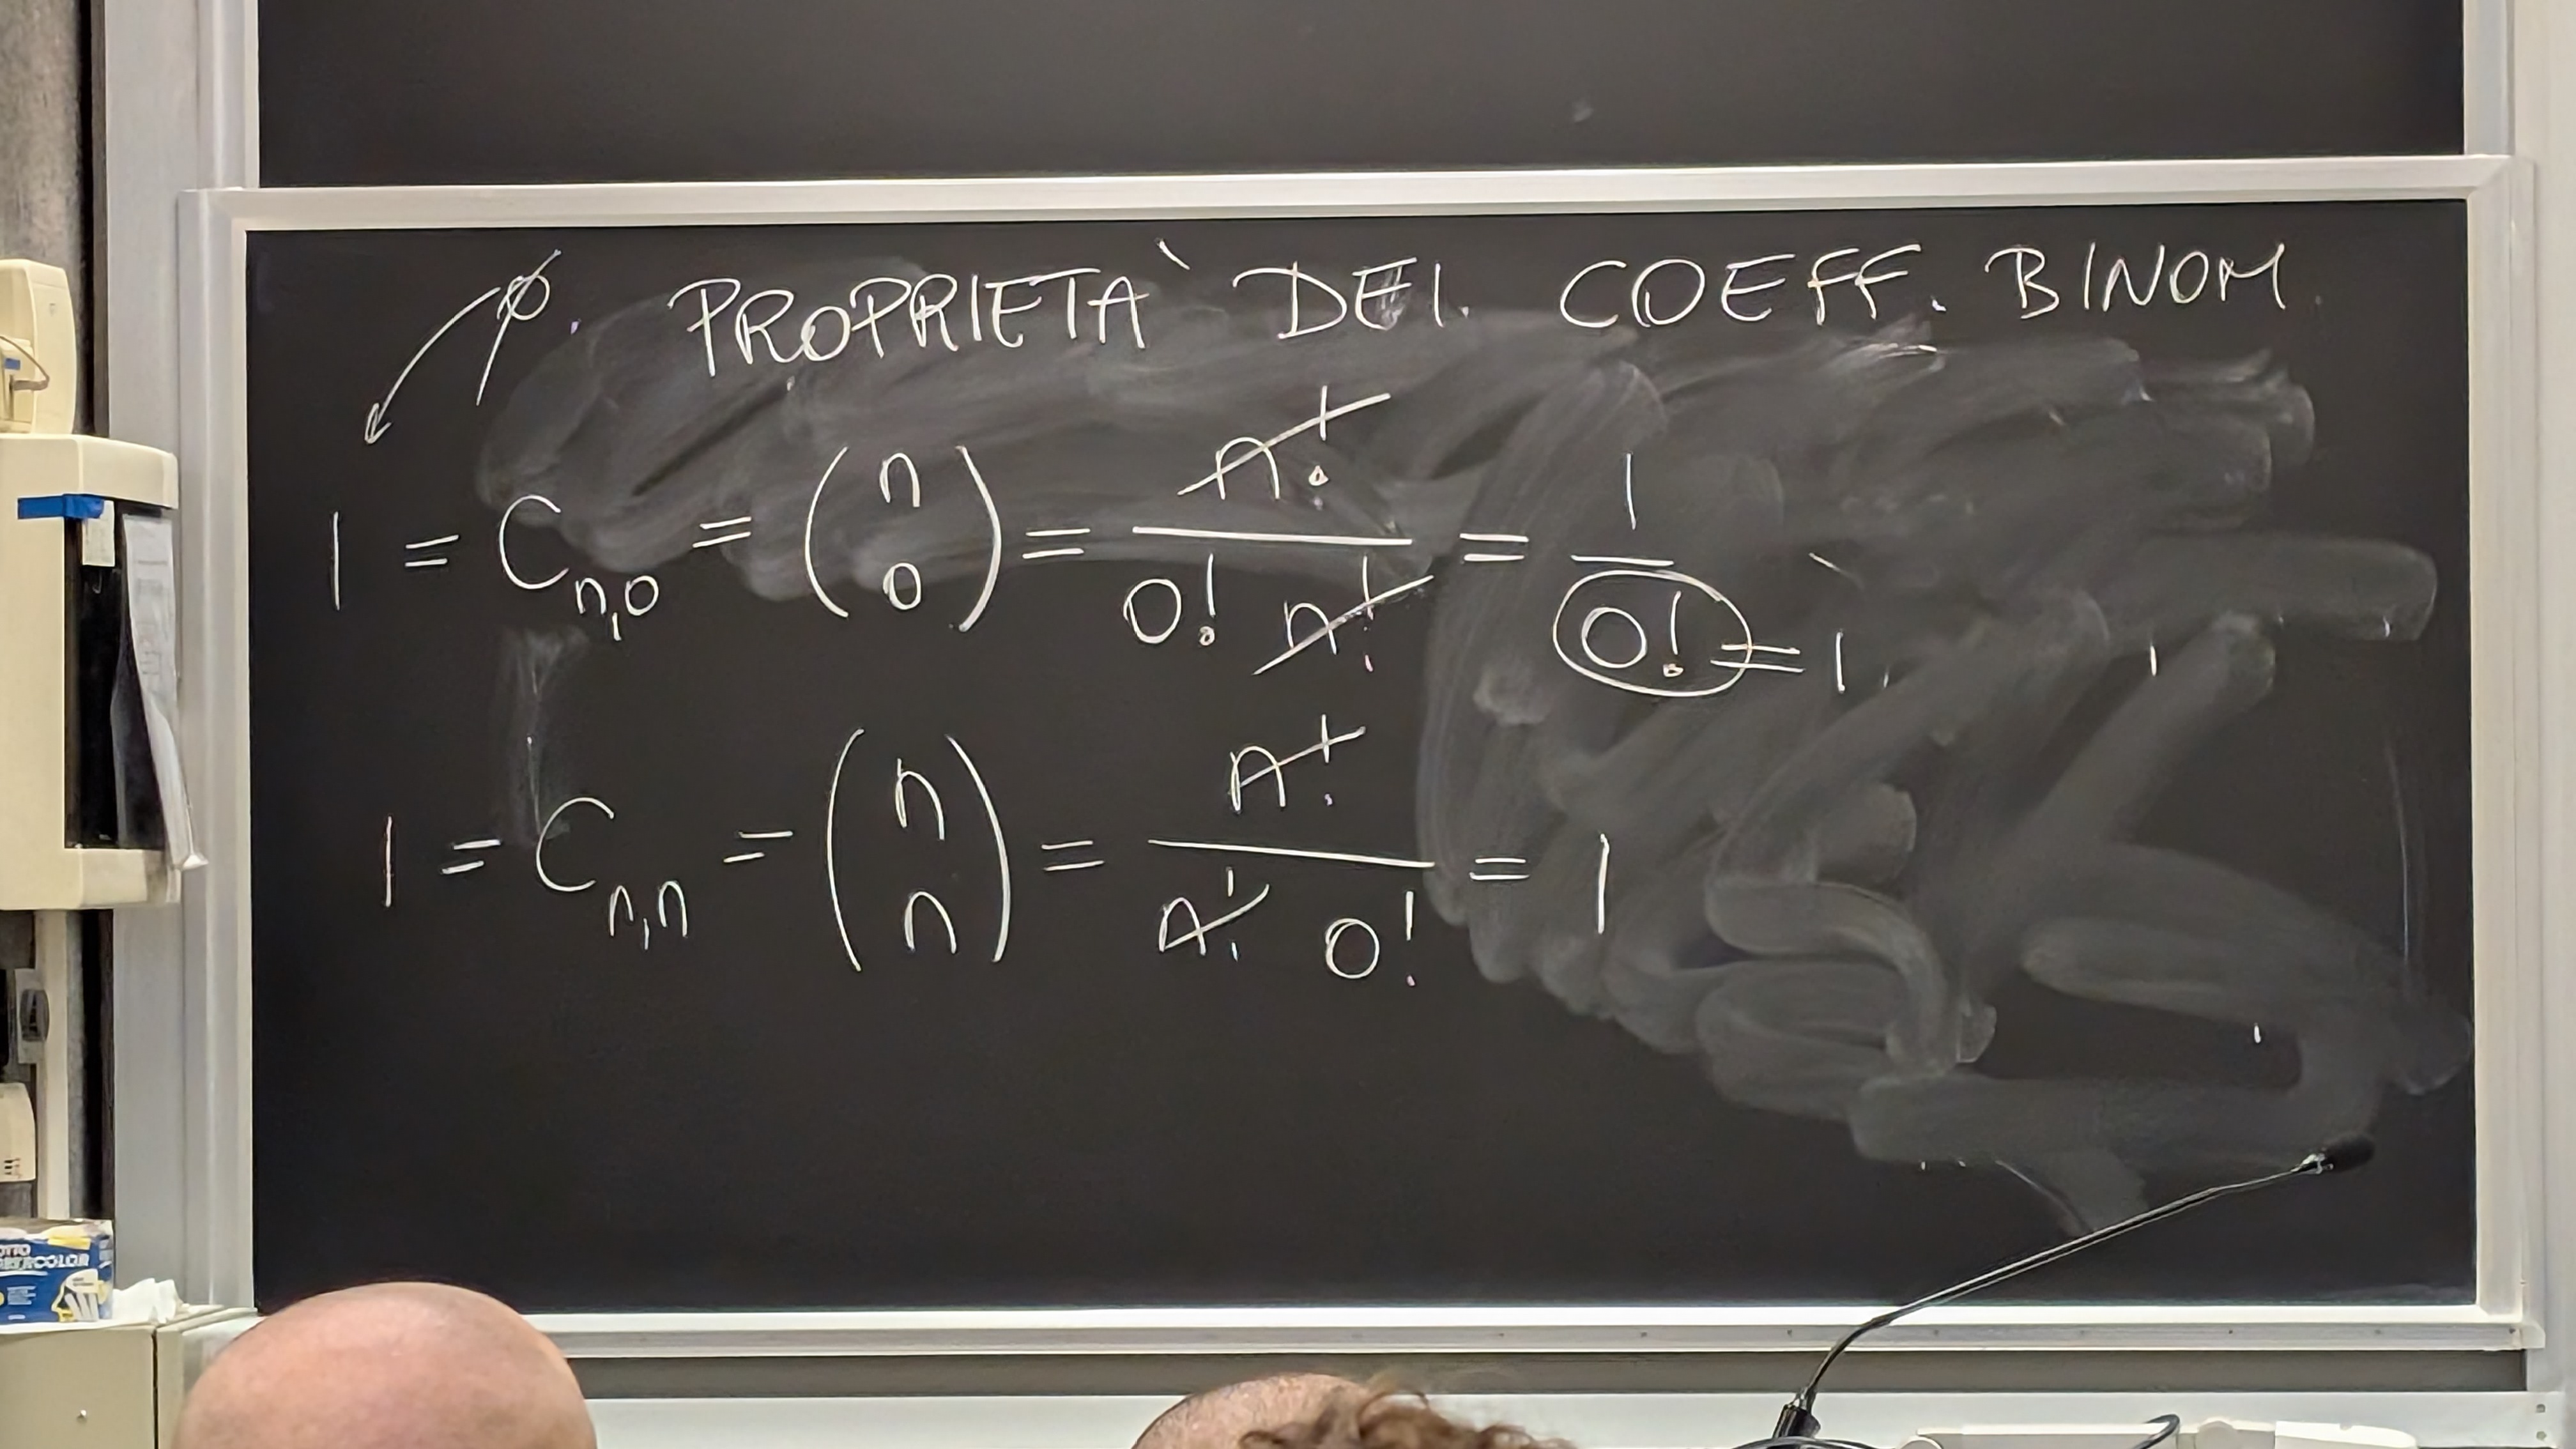 ∅ PROPRIETÀ DEI COEFF. BINOM.
1 = C_{n,0} = (n 0) = n! / 0! n! = 1 / 0! = 1
1 = C_{n,n} = (n n) = n! / n! 0! = 1